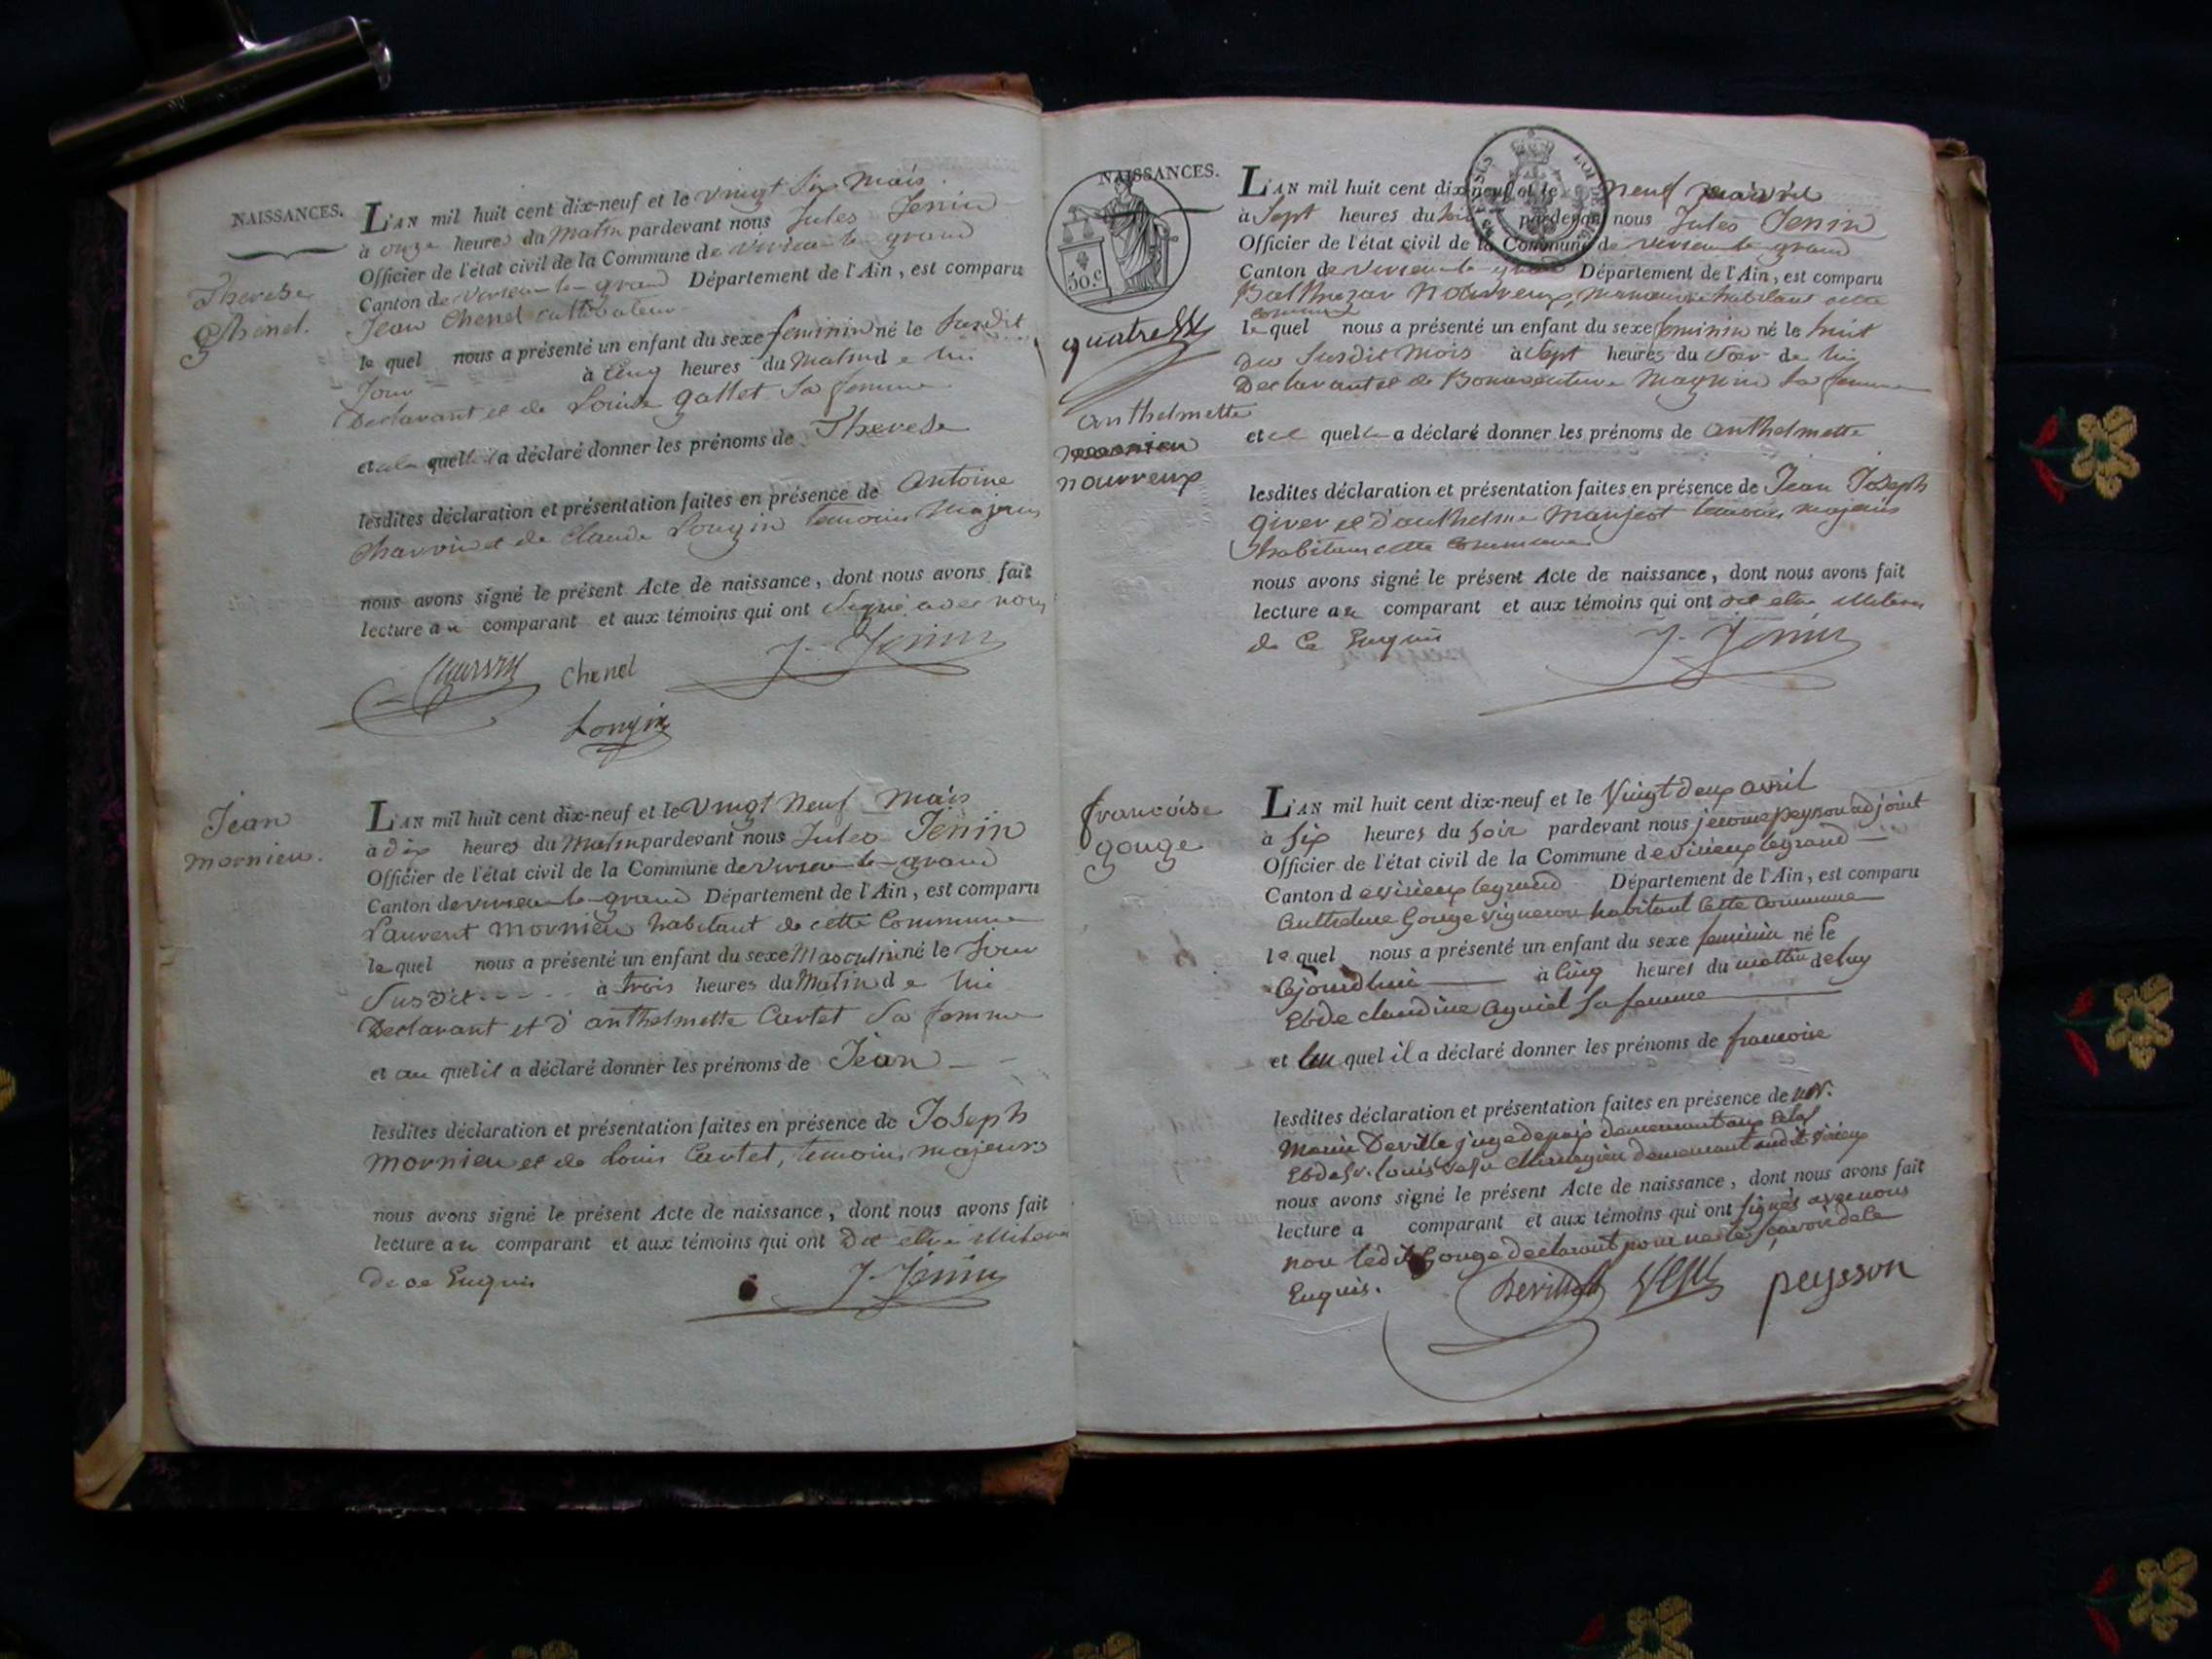 NAISSANCES.
Therese
Chenel.
L'AN mil huit cent dix-neuf et le vingt six mars.
à onze heures du Matin pardevant nous Jules Jenin
Officier de l'état civil de la Commune de virieu-le-grand
Canton de virieu-le-grand Département de l'Ain, est comparu
Jean Chenel cultivateur
le quel nous a présenté un enfant du sexe feminin né le susdit
Jour à cinq heures du Matin de lui
Declarant et de Louise gallet sa femme
et a la quelle il a déclaré donner les prénoms de Therese
lesdites déclaration et présentation faites en présence de antoine
Charvin et de Claude Longin temoins Majeurs
nous avons signé le présent Acte de naissance, dont nous avons fait
lecture au comparant et aux témoins qui ont signé avec nous
Charvin Chenel J. Jenin
Longin
Jean
mornieu.
L'AN mil huit cent dix-neuf et le vingt neuf mars
à dix heures du Matin pardevant nous Jules Jenin
Officier de l'état civil de la Commune de virieu-le-grand
Canton de virieu-le-grand Département de l'Ain, est comparu
Laurent mornieu habitant de cette Commune
le quel nous a présenté un enfant du sexe Masculin né le Jour
susdit à trois heures du Matin de lui
Declarant et d'anthelmette Cartet sa femme
et au quel il a déclaré donner les prénoms de Jean
lesdites déclaration et présentation faites en présence de Joseph
mornieu et de louis Cartet, temoins majeurs
nous avons signé le présent Acte de naissance, dont nous avons fait
lecture au comparant et aux témoins qui ont Dit etre illiteres
de ce Enquis J. Jenin
NAISSANCES.
50.c
quatre
anthelmette
nouvreux
L'AN mil huit cent dix-neuf et le neuf avril
à sept heures du soir pardevant nous Jules Jenin
Officier de l'état civil de la Commune de virieu-le-grand
Canton de virieu-le-grand Département de l'Ain, est comparu
Balthazar nouvreux, manoeuvre habitant cette
commune
le quel nous a présenté un enfant du sexe feminin né le huit
du susdit mois à sept heures du soir de lui
Declarant et de Bonaventure Magnin sa femme
et a quelle a déclaré donner les prénoms de anthelmette
lesdites déclaration et présentation faites en présence de Jean Joseph
giver et d'anthelme Manjeot temoins majeurs
habitans cette commune
nous avons signé le présent Acte de naissance, dont nous avons fait
lecture au comparant et aux témoins qui ont dit etre illiteres
de ce Enquis J. Jenin
francoise
gouge
L'AN mil huit cent dix-neuf et le vingt deux avril
à six heures du soir pardevant nous jerome peysson adjoint
Officier de l'état civil de la Commune de virieux legrand
Canton de virieux legrand Département de l'Ain, est comparu
Anthelme Gouge vigneron habitant cette commune
le quel nous a présenté un enfant du sexe feminin né le
cejourdhui à cinq heures du mattin de luy
Et de claudine aguiel sa femme
et au quel il a déclaré donner les prénoms de francoise
lesdites déclaration et présentation faites en présence de
Marin Deville juge de paix demeurant
Et de sr. louis chirurgien demeurant audit virieux
nous avons signé le présent Acte de naissance, dont nous avons fait
lecture a comparant et aux témoins qui ont signés avec nous
non ledit Gouge declarant pour ne le scavoir de ce
Enquis. Deville peysson